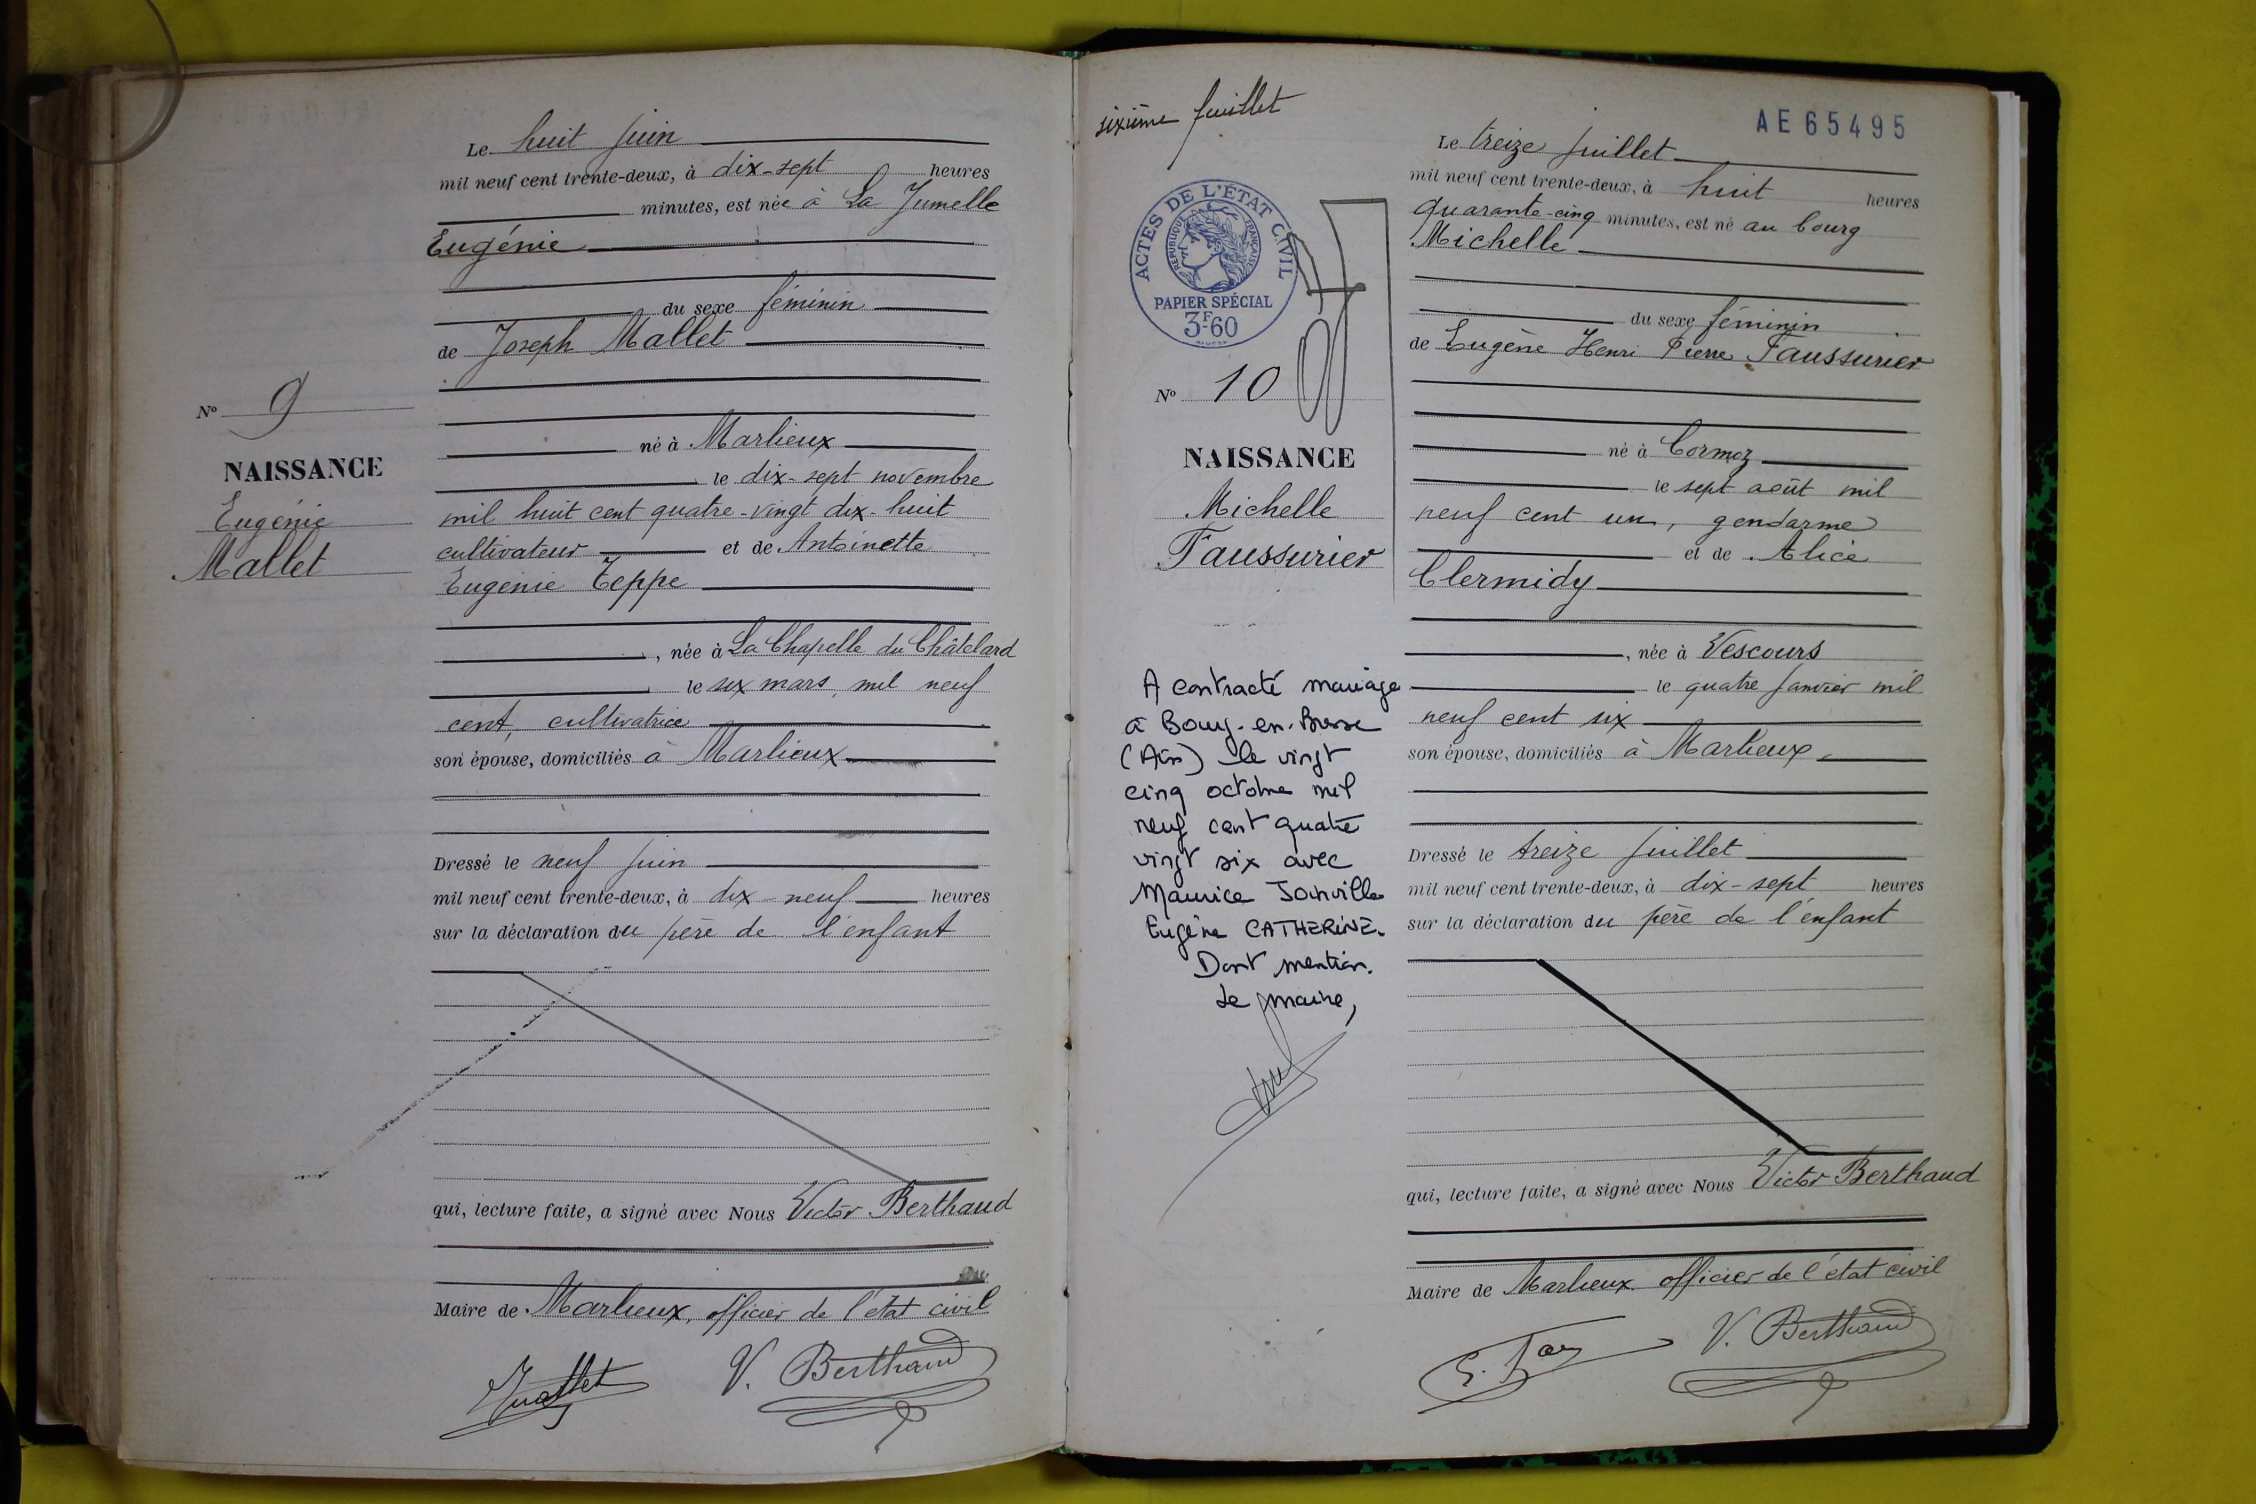 Le huit juin
mil neuf cent trente-deux, à dix-sept heures
minutes, est née à La Jumelle
Eugénie
du sexe féminin
de Joseph Mallet
né à Marlieux
le dix-sept novembre
mil huit cent quatre-vingt dix-huit
cultivateur et de Antoinette
Eugénie Teppe
, née à La Chapelle du Châtelard
le six mars, mil neuf
cent, cultivatrice
son épouse, domiciliés à Marlieux
Dressé le neuf juin
mil neuf cent trente-deux, à dix-neuf heures
sur la déclaration du père de l'enfant
qui, lecture faite, a signé avec Nous Victor Berthaud
Maire de Marlieux, officier de l'état civil
Mallet V. Berthaud
No 9
NAISSANCE
Eugénie
Mallet
sixième feuillet
AE65495
ACTES DE L'ÉTAT CIVIL
RÉPUBLIQUE FRANÇAISE
PAPIER SPÉCIAL
3F60
No 10
NAISSANCE
Michelle
Faussurier
A contracté mariage
à Bourg-en-Bresse
(Ain) le vingt
cinq octobre mil
neuf cent quatre
vingt six avec
Maurice Joinville
Eugène CATHERINE.
Dont mention.
Le maire,
Le treize juillet
mil neuf cent trente-deux, à huit heures
quarante-cinq minutes, est né au bourg
Michelle
du sexe féminin
de Eugène Henri Pierre Faussurier
né à Cormoz
le sept août mil
neuf cent un, gendarme
et de Alice
Clermidy
, née à Vescours
le quatre janvier mil
neuf cent six
son épouse, domiciliés à Marlieux
Dressé le treize juillet
mil neuf cent trente-deux, à dix-sept heures
sur la déclaration du père de l'enfant
qui, lecture faite, a signé avec Nous Victor Berthaud
Maire de Marlieux officier de l'état civil
V. Berthaud